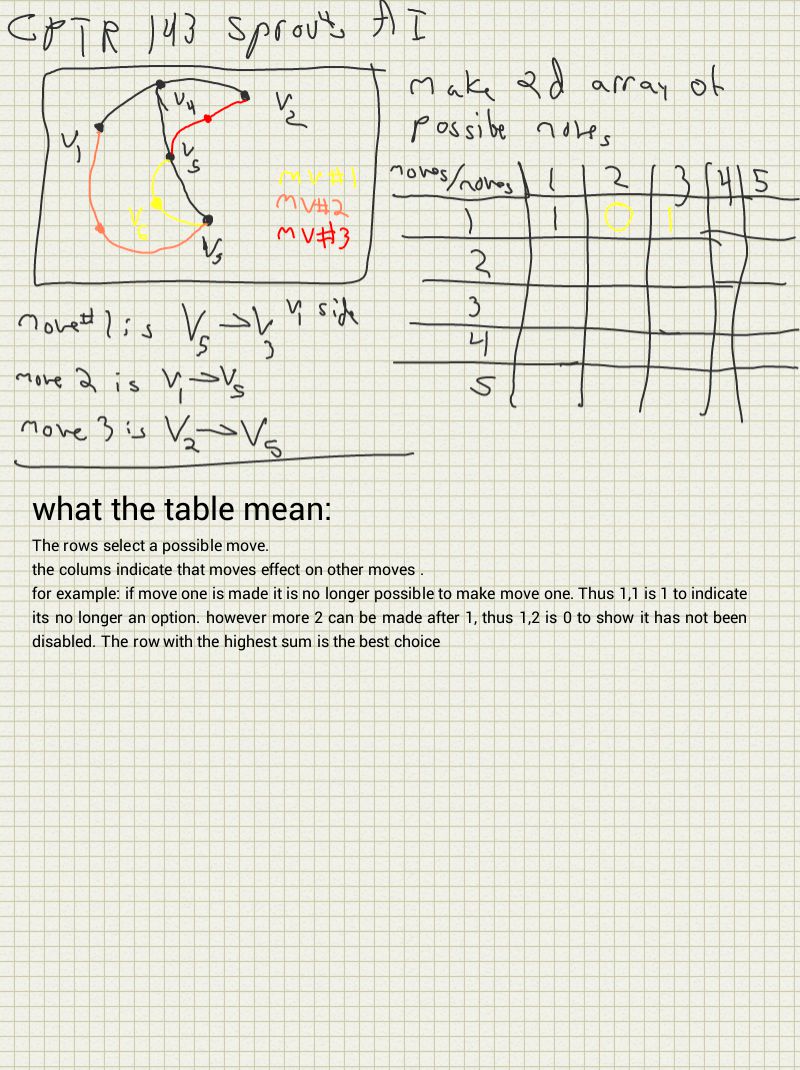 CPTR 143 Sprouts AI
V4
V2
V1
V5
MV#1
V6
MV#2
V3
MV#3
Make 2d array of
possibe moves
moves/moves 1 2 3 4 5
1 1 0 1
2
3
4
5
move#1 is V5→V3 V1 side
move 2 is V1→V5
move 3 is V2→V5
what the table mean:
The rows select a possible move.
the colums indicate that moves effect on other moves .
for example: if move one is made it is no longer possible to make move one. Thus 1,1 is 1 to indicate
its no longer an option. however more 2 can be made after 1, thus 1,2 is 0 to show it has not been
disabled. The row with the highest sum is the best choice